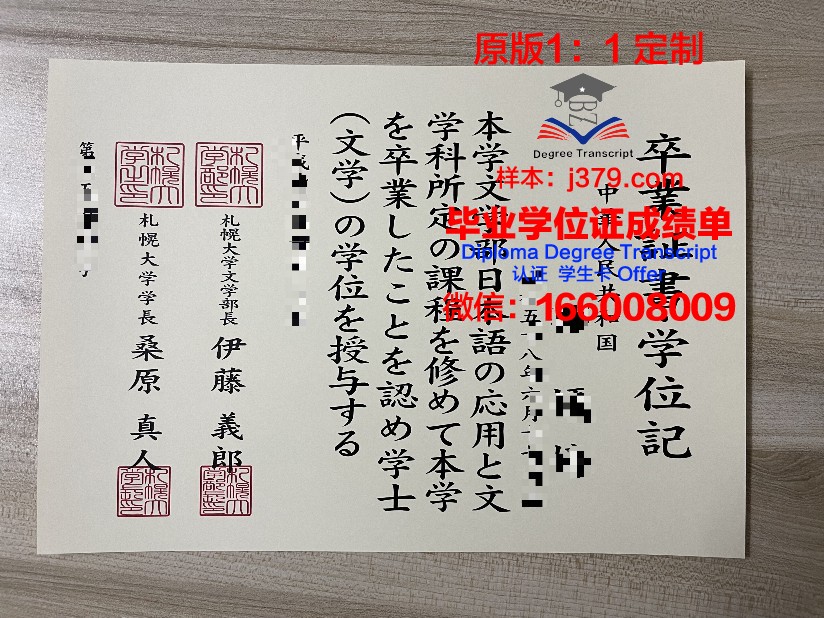 原版1：1 定制
Degree Transcript
样本：j379.com
毕业学位证成绩单
Diploma Degree Transcript
认证 学生卡 Offer
微信：166008009
卒業証書 学位記
中華人民共和国
本学文学部日本語の応用と文
学科所定の課程を修めて本学
を卒業したことを認め学士
（文学）の学位を授与する
札幌大学文学部長 伊藤 義郎
札幌大学学長 桑原 真人